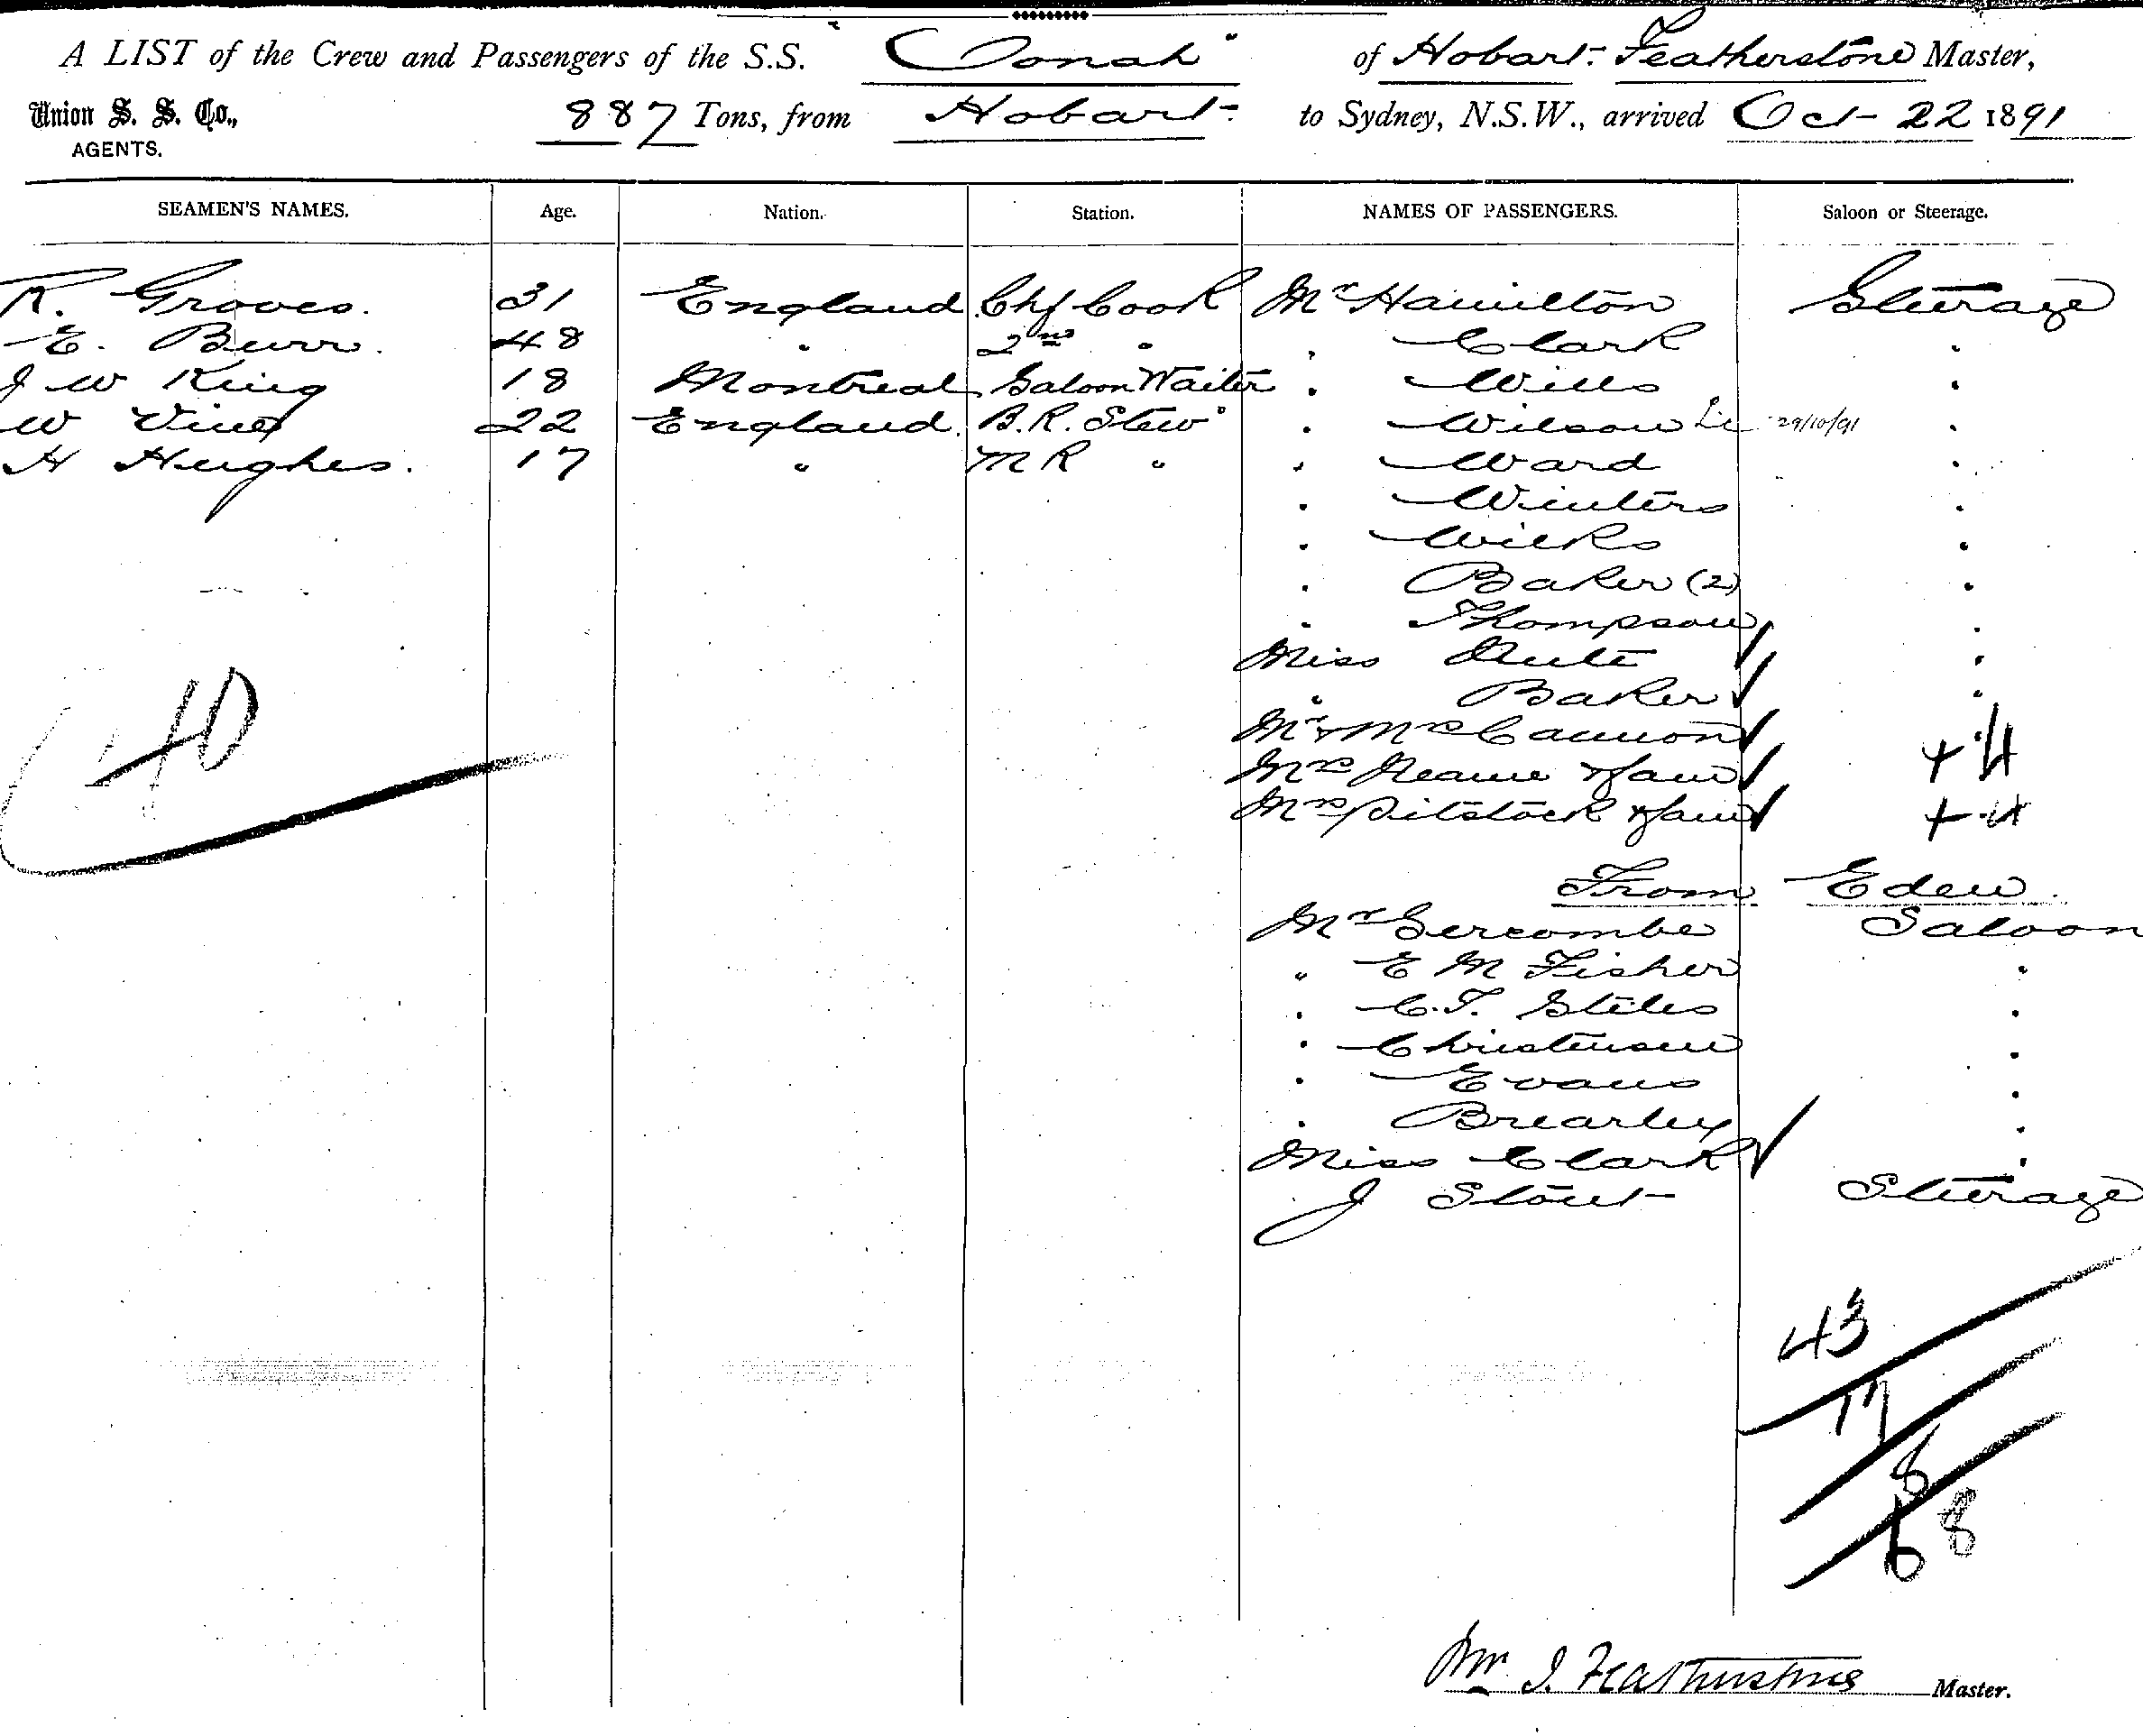 A LIST of the Crew and Passengers of the S.S. "Oonah" of Hobart. Featherstone Master,
Union S. S. Co., 887 Tons, from Hobart to Sydney, N.S.W., arrived Oct 22 1891
AGENTS.
SEAMEN'S NAMES. Age. Nation. Station. NAMES OF PASSENGERS. Saloon or Steerage.
R. Groves. 31 England Chf Cook Mr Hamilton Steerage
E. Burr. 48 " 2nd " " Clark "
J W King 18 Montreal Saloon Waiter " Wills "
W Vine 22 England B.R. Stew " Wilson 29/10/91 "
H Hughes. 17 " M R " " Ward "
" Winters "
" Wilks "
" Baker (2) "
" Thompson "
Miss "
" Baker "
Mr & Mrs Cannon
Mrs & fam + 4
Mrs Pitstock & fam + 4
40
From Eden.
Mr Sercombe Saloon
" E M Fisher "
" C. T. Stiles "
" Christensen "
" Evans "
" Brearley "
Miss Clark "
J Stout Steerage
43
17
8
68
Wm J. Featherstone Master.